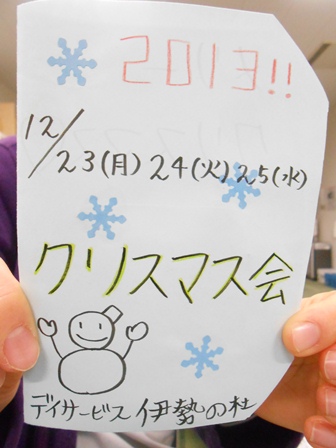 2013!!
12/23(月) 24(火) 25(水)
クリスマス会
デイサービス 伊勢の杜